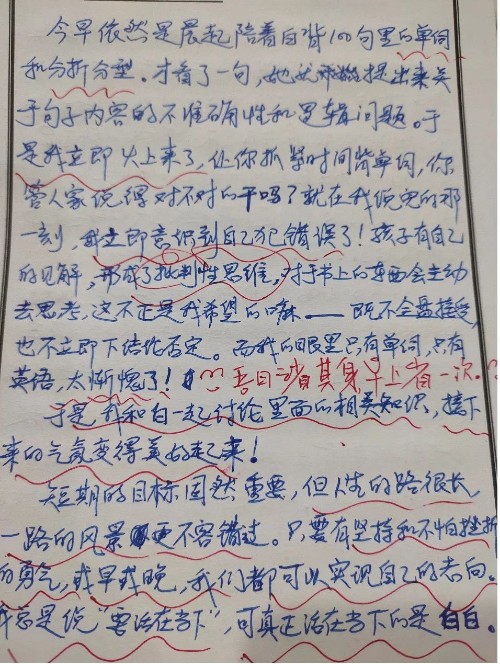 今早依然是晨起陪着白背100句里的单词
和分析句型。才看了一句，她就开始提出来关
于句子内容的不准确性和逻辑问题。于
是我立即火上来了，让你抓紧时间背单词，你
管人家说得对不对的干吗？就在我说完的那
一刻，我立即意识到自己犯错误了！孩子有自己
的见解，形成了批判性思维，对于书上的东西会主动
去思考，这不正是我希望的嘛——既不全盘接受，
也不立即下结论否定。而我的眼里只有单词，只有
英语，太惭愧了！吾日三省其身早上省一次。
于是我和白一起讨论里面的相关知识，接下
来的气氛变得美好起来！
短期的目标固然重要，但人生的路很长，
一路的风景更不容错过。只要有坚持和不怕挫折
的勇气，或早或晚，我们都可以实现自己的志向。
我总是说“要活在当下”，可真正活在当下的是白白。